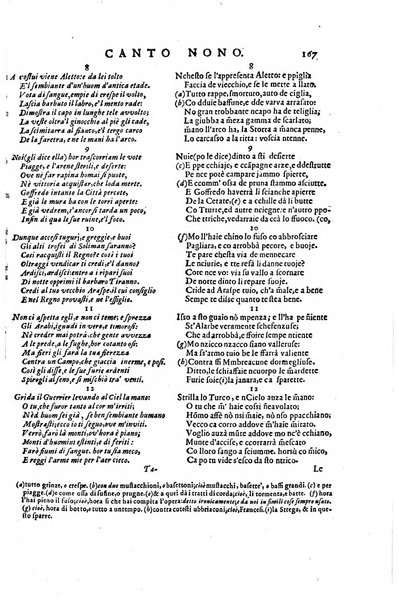 CANTO NONO. 167
8
A costui viene Aletto: e da lei tolto
E'l sembiante d'un huom d'antica etade.
Vota di sangue, empie di crespe il volto,
Lascia barbuto il labro, e'l mento rade:
Dimostra il capo in lunghe tele avvolto:
La veste oltra'l ginocchio al piè gli cade,
La scimitarra al fianco, e'l tergo carco
De la faretra, e ne le mani ha l'arco.
9
Noi (gli dice ella) hor trascorriam le vote
Piagge, e l'arene sterili, e deserte:
Ove nè far rapina homai si puote,
Nè vittoria acquistar, che loda merte.
Goffredo intanto la Città percote,
E già le mura ha con le torri aperte:
E già vedrem, s'ancor si tarda un poco,
Infin di quà le sue ruine, e'l foco.
10
Dunque accesi tuguri, e greggie, e buoi
Gli alti trofei di Soliman saranno?
Così racquisti il Regno? e così i tuoi
Oltraggi vendicar ti credi, e'l danno?
Ardisci, ardisci: entro a i ripari suoi
Di notte opprimi il barbaro Tiranno.
Credi al tuo vecchio Araspe, il cui consiglio
E nel Regno provasti, e ne l'esiglio.
11
Non ci aspetta egli, e non ci teme: e sprezza
Gli Arabi, ignudi in vero, e timorosi:
Nè creder mai potrà, che gente avvezza
A le prede, a le fughe, hor cotanto osi.
Ma fieri gli farà la tua fierezza
Contra un Campo, che giaccia inerme, e posi.
Così gli disse, e le sue furie ardenti
Spirogli al seno, e si mischiò tra' venti.
12
Grida il Guerrier levando al Ciel la mano:
O tu, che furor tanto al cor m'irriti;
Nè ed huom sei già, se ben sembiante humano
Mostrasti; ecco io ti seguo, ove m'inviti.
Verrò, farò là monti, ov'hora è piano;
Monti d'huomini estinti, e di feriti:
Farò fiumi di sangue. hor tu sia meco,
E reggi l'arme mie per l'aer cieco.
Ta-
8
Nchesto se l'appresenta Alettoì e ppiglia
Faccia de viecchio, e se le mette a llato.
(a) Tutto rappe, smoruto, auto de ciglia,
(b) Co dduie baffune, e dde varva raso.
No gran trobbante ncapo ha de teliglia,
La giubba a meza gamma de scarlato;
mano ll'arco ha, la Storta a manca penne,
Lo carcasso a la vosta le ntenne.
9
Nuie (po le dice) dinto a sti desierte
(c) E ppe cchiaje, e ccàpagne arze, e ddestrutte
Pe nce potè campare jammo spierte;
(d) E ccomm' ossa de pruna stammo asciutte.
E Goffredo haverrà li scianche apierte
De la Cetate, (e) e a buje che
Co Tturre, ed autre nciegne: e n'autro ppo
Che ttriche, vedarraje da ccà lo ffuoco,
10
(f) Mo ll'haje chino lo fuso co abbrosciare
Pagliara, e co arrobbà pecore, e buoje.
Te pare chesta via de mennecare
Le nciurie, e tte refà li danne tuoje?
Core nce vo: via su vallo a scannare
De notte, dinto a li repare suoje.
Cride ad Araspe tujo, ch'a nsalute, e mmale
Sempe te disse quanto te stea bene.
11
Isso a sto guaio nò mpenza; e ll'ha pe niente
St'Alarbe veramente schefenzuse:
Che ad arrobbà, e affoire sempe
(g) Mo nzicco nzacco siano valleruse.
Ma ss'arma toja be le ffarrà valiente
(h) Contra sti Mmbreacune dormegliuse.
Ditto, le schiaffaje ncuorpo le mardette
Furie soie (i) la janara, e ca sparette.
12
Strilla lo Turco, e nCielo auza le mano:
O tu che m'haie cossì ncavolato;
Hommo affè nò sì maie, nò spacchiano;
Vecco ca corro addove m'haie mmitato.
Voglio auzà mûte addove mo è chiano,
Munte d'accise, e scommerati llato.
Co lloro sango a sciumme. horsù mo scimmo,
Ca po tu vide s'esco da sto ntrico.
Le
(a) tutto grinze, e crespe. (b) con due mustacchioni, e basettoni; cioè mustacci, basette, o baffi grandi. (c) e per piagge. (d) e come ossa di susine, o prugne. (e) & a quei dà i tratti di corda; cioè, li tormenta, e batte. (f) hora l'hai pieno il fuso; cioè, hora sì che hai compita l'opera: detto ironicamente da noi in simili cose sempre così. (g) cioè, hora di botto, a tutto un tempo. (h) contra cotesti ubbriaconi, cioè, Francesi. (i) la Strega, & in questo sparve.